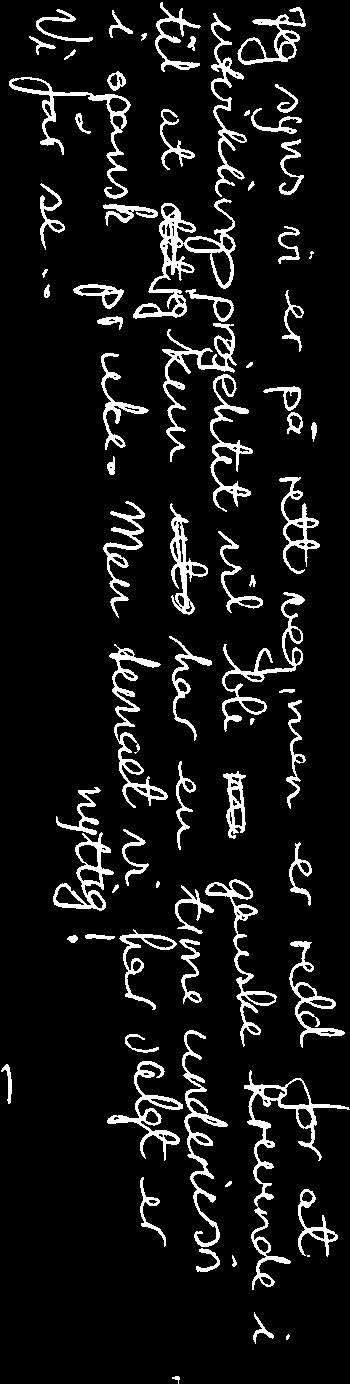 Jeg syns vi er på rett veg, men er redd for at
utviklingprosjektet vil bli ganske krevende i
til at jeg kun har en time undervisn
i spansk pr uke. Men temaet vi har valgt er
nyttig!
Vi får se..